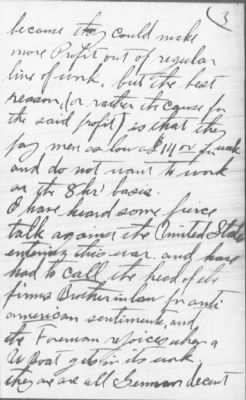 3
because they could make
more Profit out of regular
line of work, but the best
reason, (or rather the cause for
the said profit) is that they
pay men as low as $14 or week
and do not want to work
on the 8 hr' basis.
I have heard some fierce
talk against the United States
entering this war. and have
had to call the head of the
firms Brother in law for anti
american sentiments, and
the Foreman rejoices when a
U Boat gets in its work.
they are all German decent